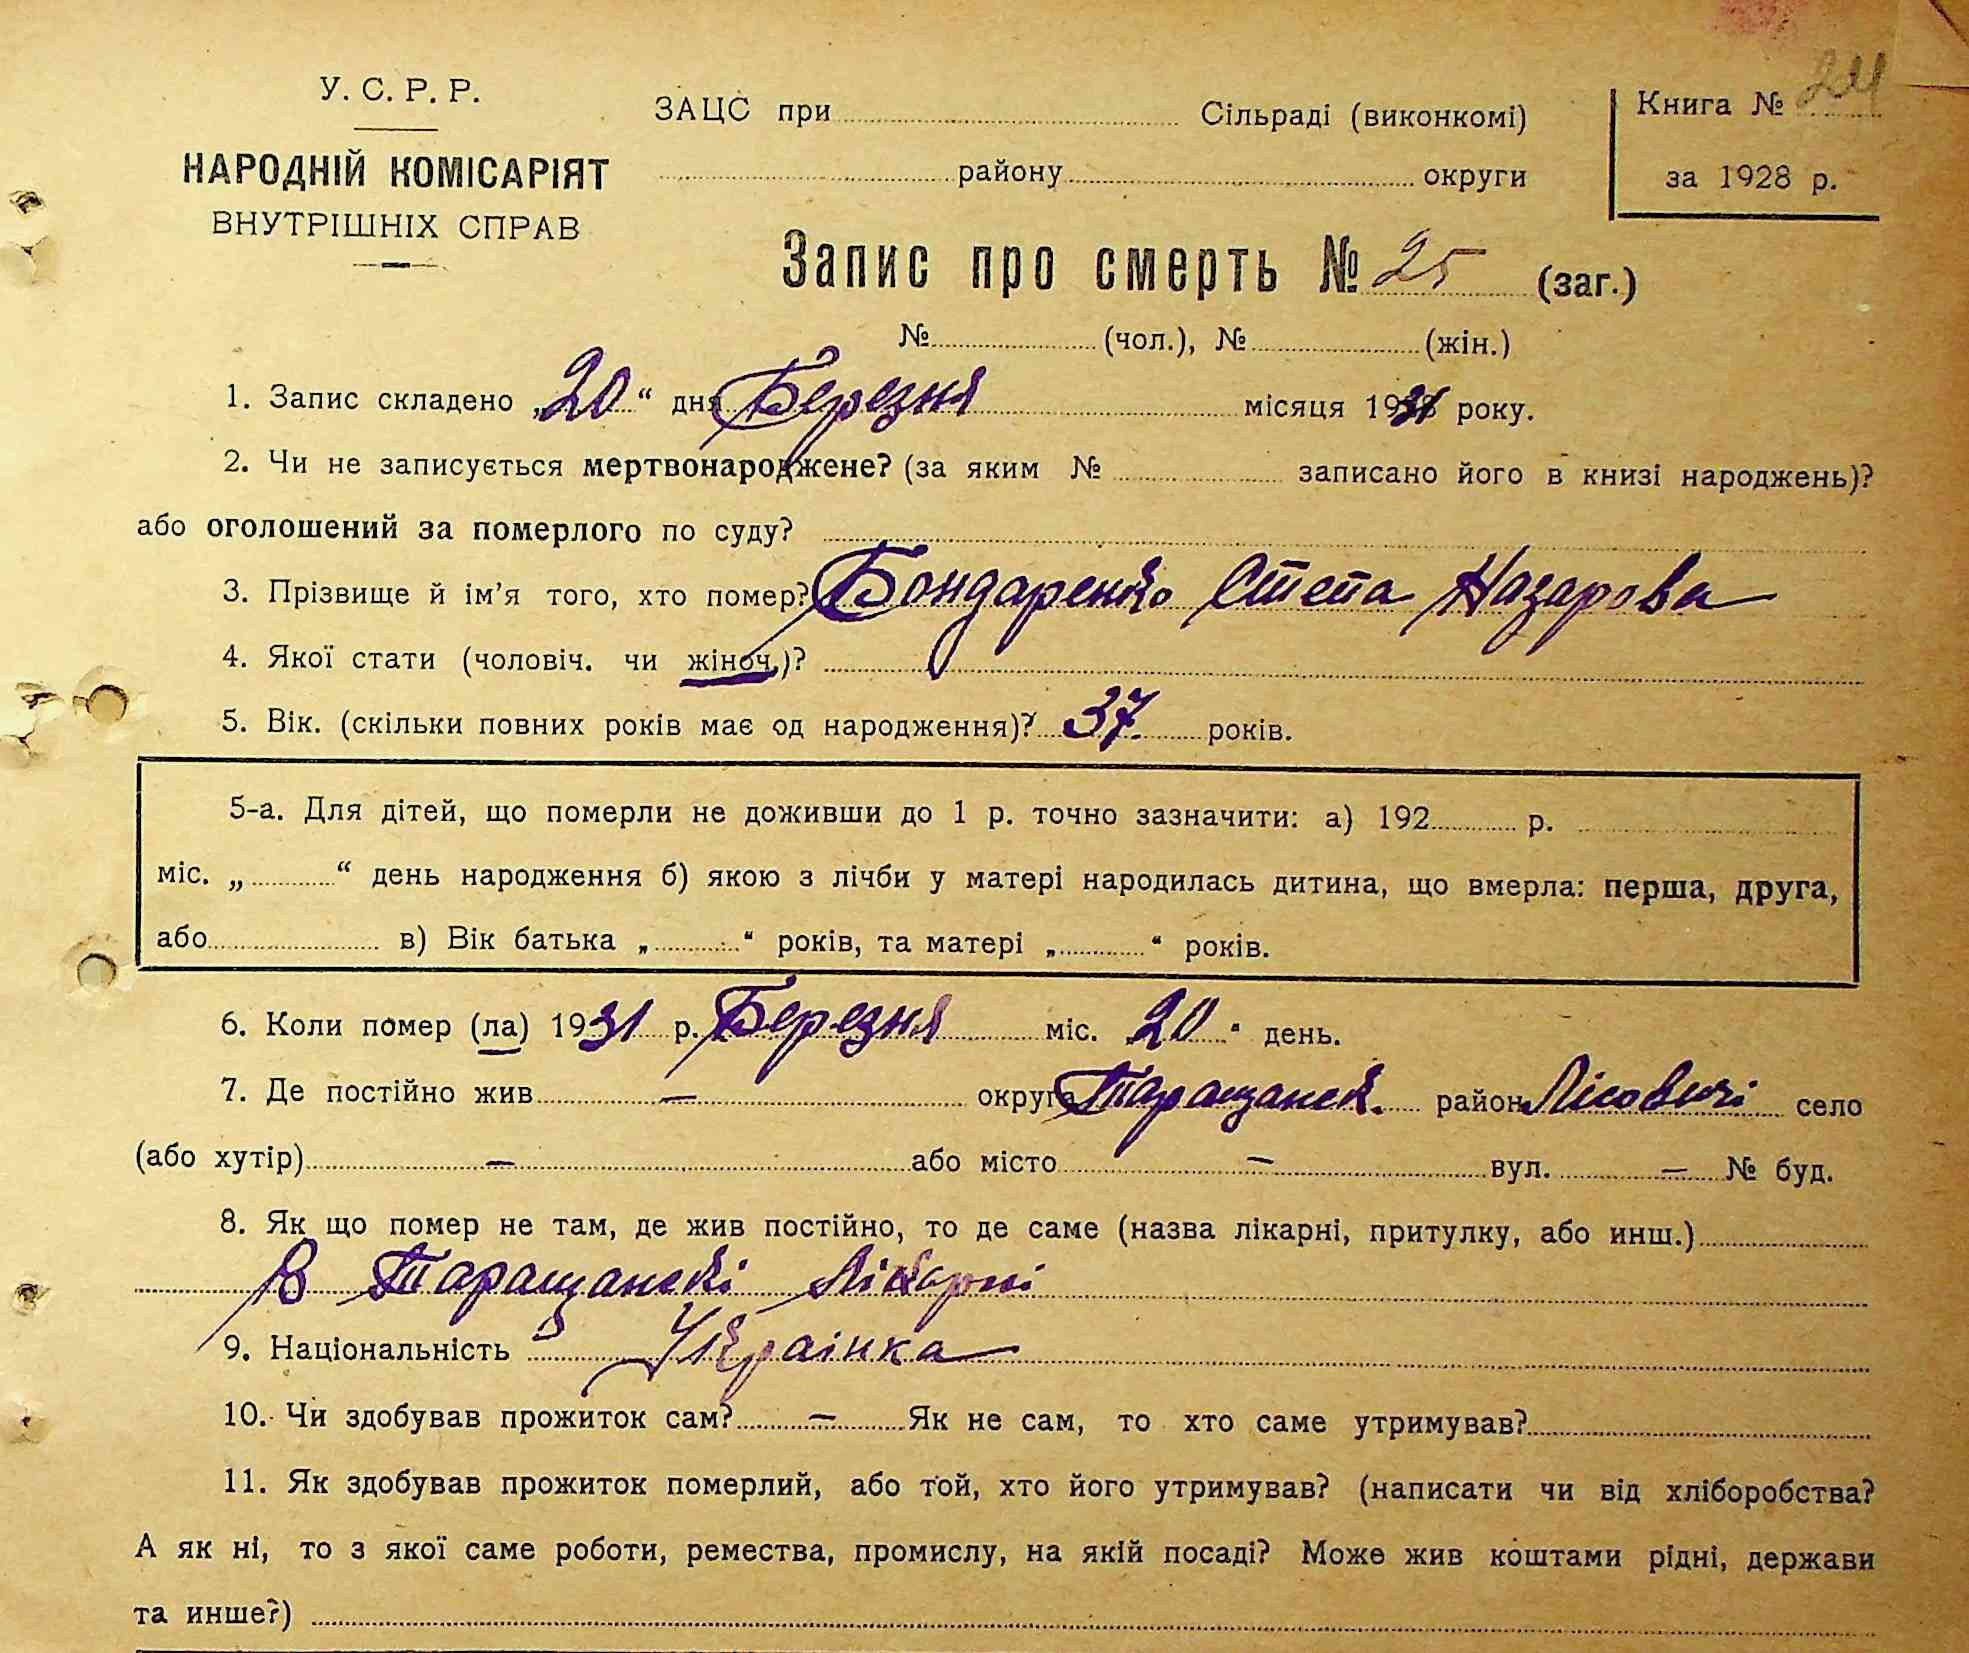 У. С. Р. Р.
НАРОДНІЙ КОМІСАРІЯТ
ВНУТРІШНІХ СПРАВ
ЗАЦС при Сільраді (виконкомі)
району округи
Книга № 24
за 1928 р.
Запис про смерть № 25 (заг.)
№ (чол.), № (жін.)
1. Запис складено „20“ дня Березня місяця 1931 року.
2. Чи не записується мертвонароджене? (за яким № записано його в книзі народжень)?
або оголошений за померлого по суду?
3. Прізвище й ім'я того, хто помер? Бондаренко Степа Назарова
4. Якої стати (чоловіч. чи жіноч.)?
5. Вік. (скільки повних років має од народження)? 37 років.
5-а. Для дітей, що померли не доживши до 1 р. точно зазначити: а) 192 р.
міс. „ “ день народження б) якою з лічби у матері народилась дитина, що вмерла: перша, друга,
або в) Вік батька „ “ років, та матері „ “ років.
6. Коли помер (ла) 1931 р. Березня міс. „20“ день.
7. Де постійно жив — округа Таращанск. район Лісовичі село
(або хутір) — або місто — вул. — № буд.
8. Як що помер не там, де жив постійно, то де саме (назва лікарні, притулку, або инш.)
В Таращанскі Лікарні
9. Національність Українка
10. Чи здобував прожиток сам? — Як не сам, то хто саме утримував?
11. Як здобував прожиток померлий, або той, хто його утримував? (написати чи від хліборобства?
А як ні, то з якої саме роботи, ремества, промислу, на якій посаді? Може жив коштами рідні, держави
та инше?)